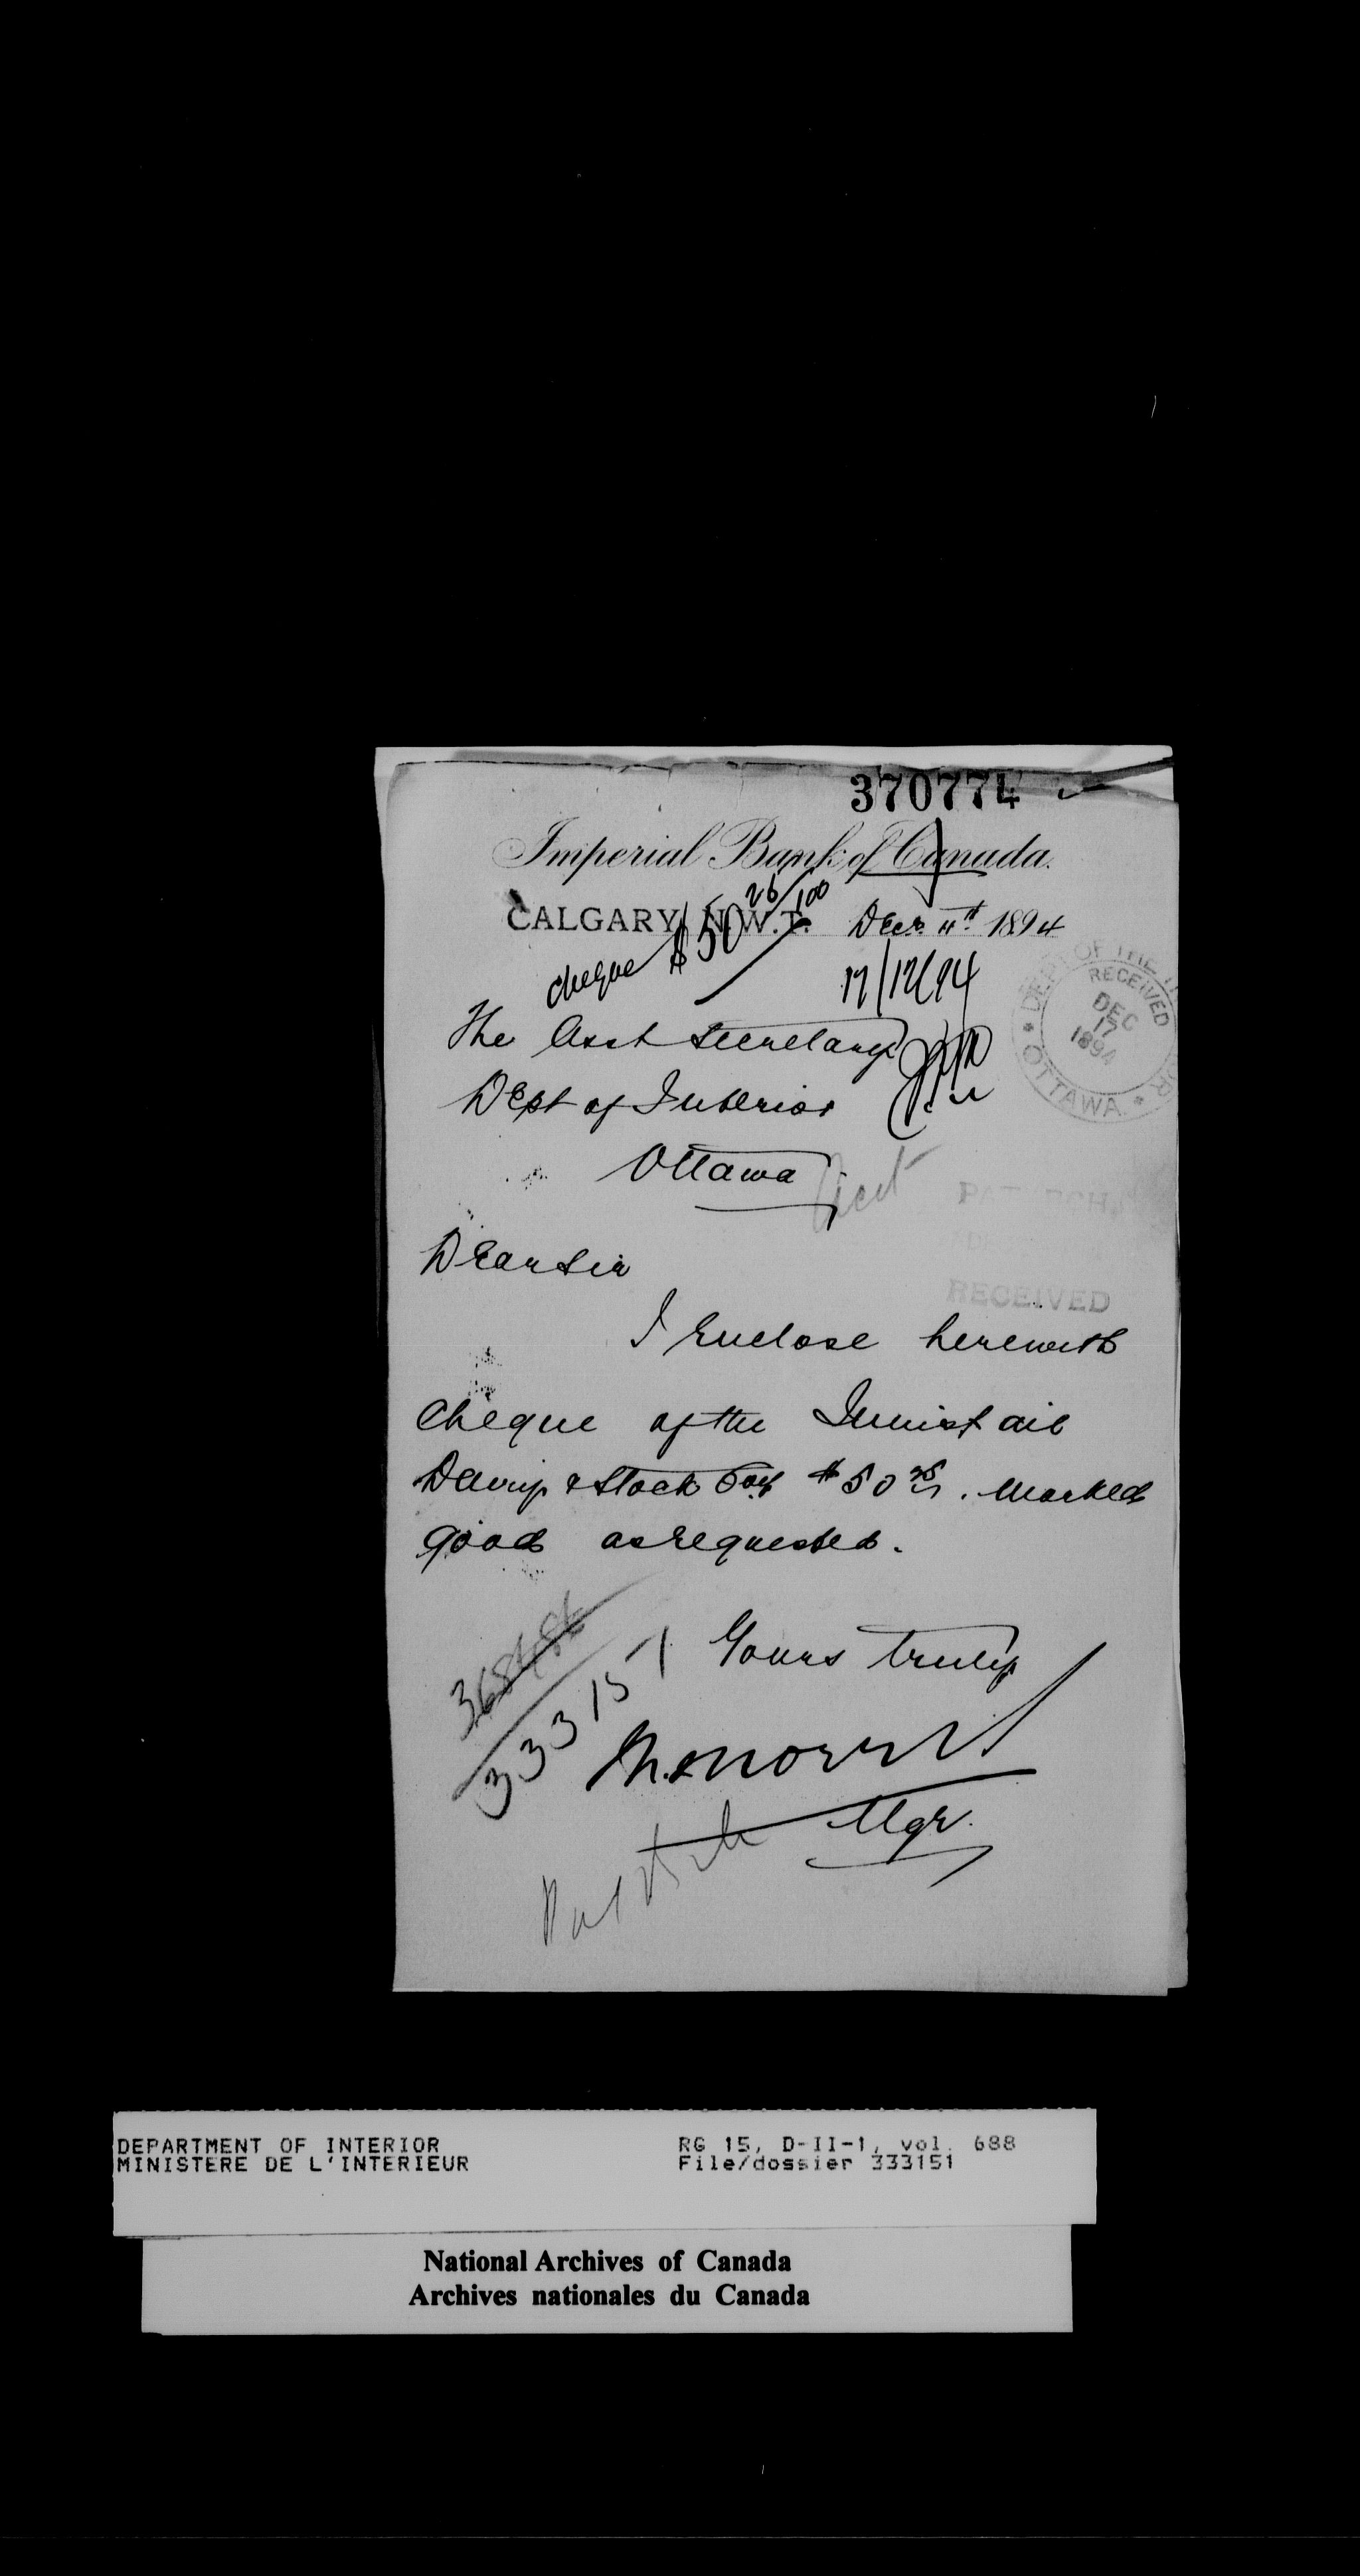 370774
Imperial Bank of Canada.
CALGARY, N.W.T. Dec. 11th 1894
cheque $50 26/100
17/12/94
DEPT OF THE INTERIOR
RECEIVED
DEC
17
1894
* OTTAWA *
The Asst Secretary
Dept of Interior
Ottawa
Dear Sir
RECEIVED
I Enclose herewith
Cheque of the Innisfail
Dairy & Stock Coy $50 . Marked
good as requested.
368486
333151
Yours truly
Mgr.
DEPARTMENT OF INTERIOR
MINISTERE DE L'INTERIEUR
RG 15, D-II-1, vol. 688
File/dossier 333151
National Archives of Canada
Archives nationales du Canada